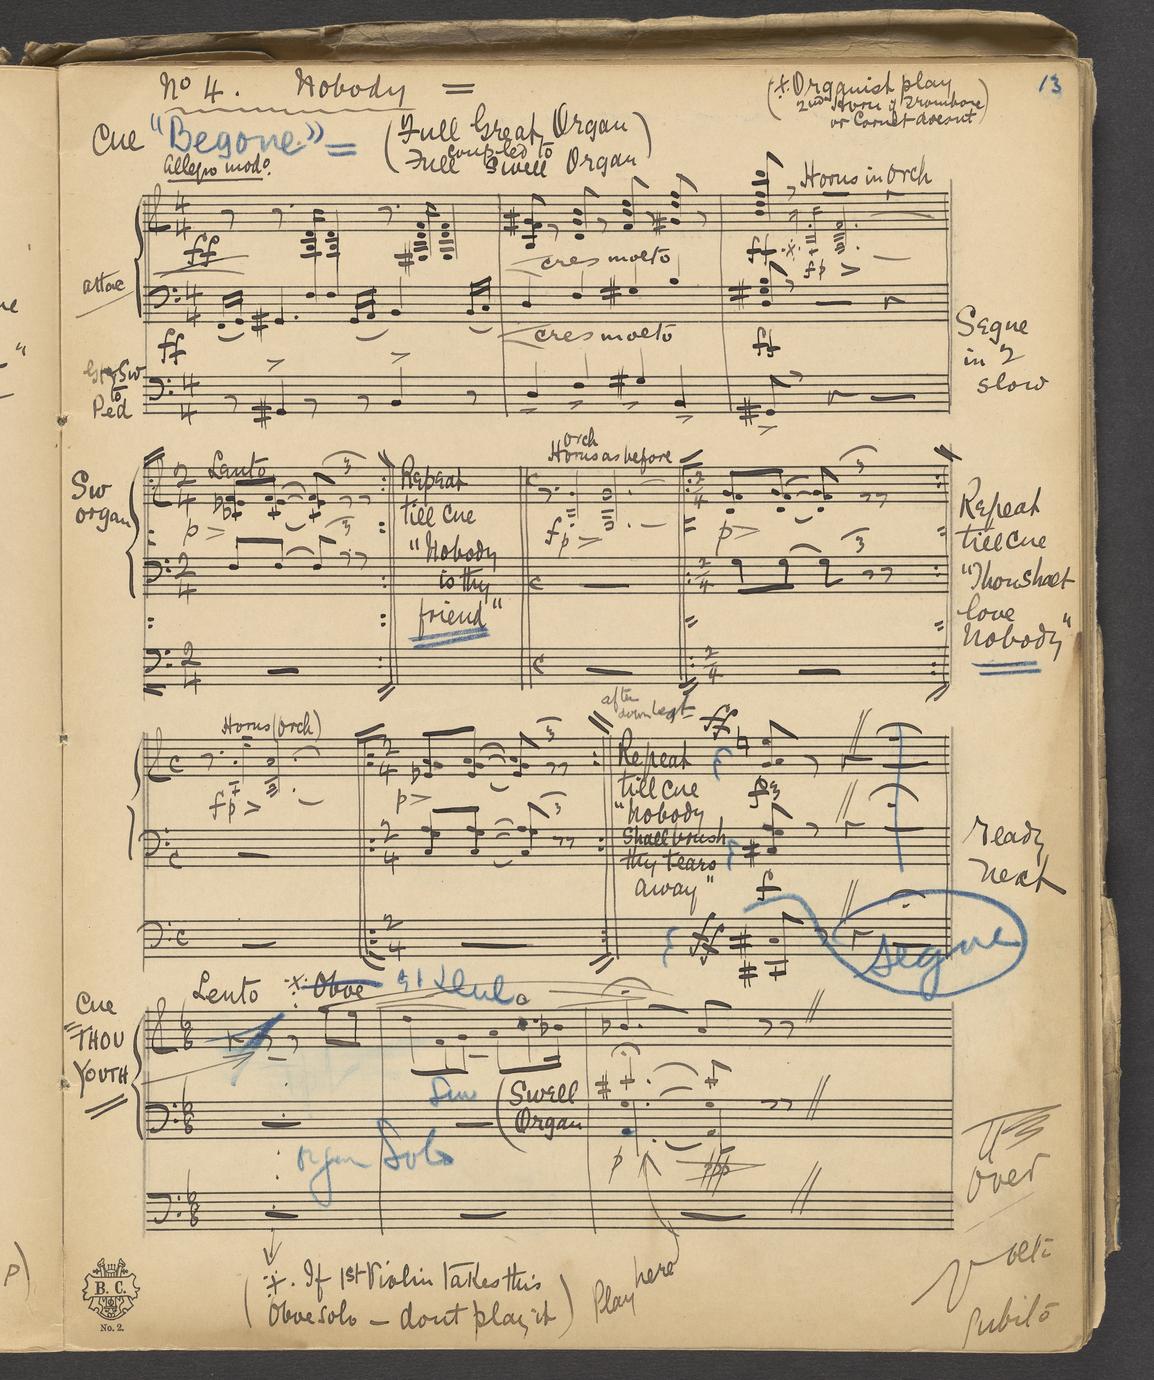 No 4. Nobody =
(* Organist play
2nd Horn if Trombone
or Cornet doesnt)
13
Cue "Begone" =
(Full Great Organ
coupled to
Full Swell Organ)
Allegro modo.
Horns in orch
ff
cres molto
ff *
fp >
attac
ff
cres molto
ff
Segue
in 2
slow
Gt & Sw
to
Ped
Sw
organ
Lento
3
p >
3
Repeat
till cue
"Nobody
is thy
friend"
orch
Horns as before
fp >
3
p >
3
Repeat
till cue
"Thou shalt
love
Nobody"
Horns (orch)
fp >
3
p >
3
after
down beat
Repeat
till cue
"nobody
Shall brush
thy tears
away"
ff
f
ff
ready
next
Segue
Cue
"THOU
YOUTH"
Lento
* Oboe
Swell
Organ
organ Solo
p
ppp
over
Volti
Subito
(*. If 1st Violin takes this
Oboe solo – dont play it)
Play here
B. C.
No. 2.
P)